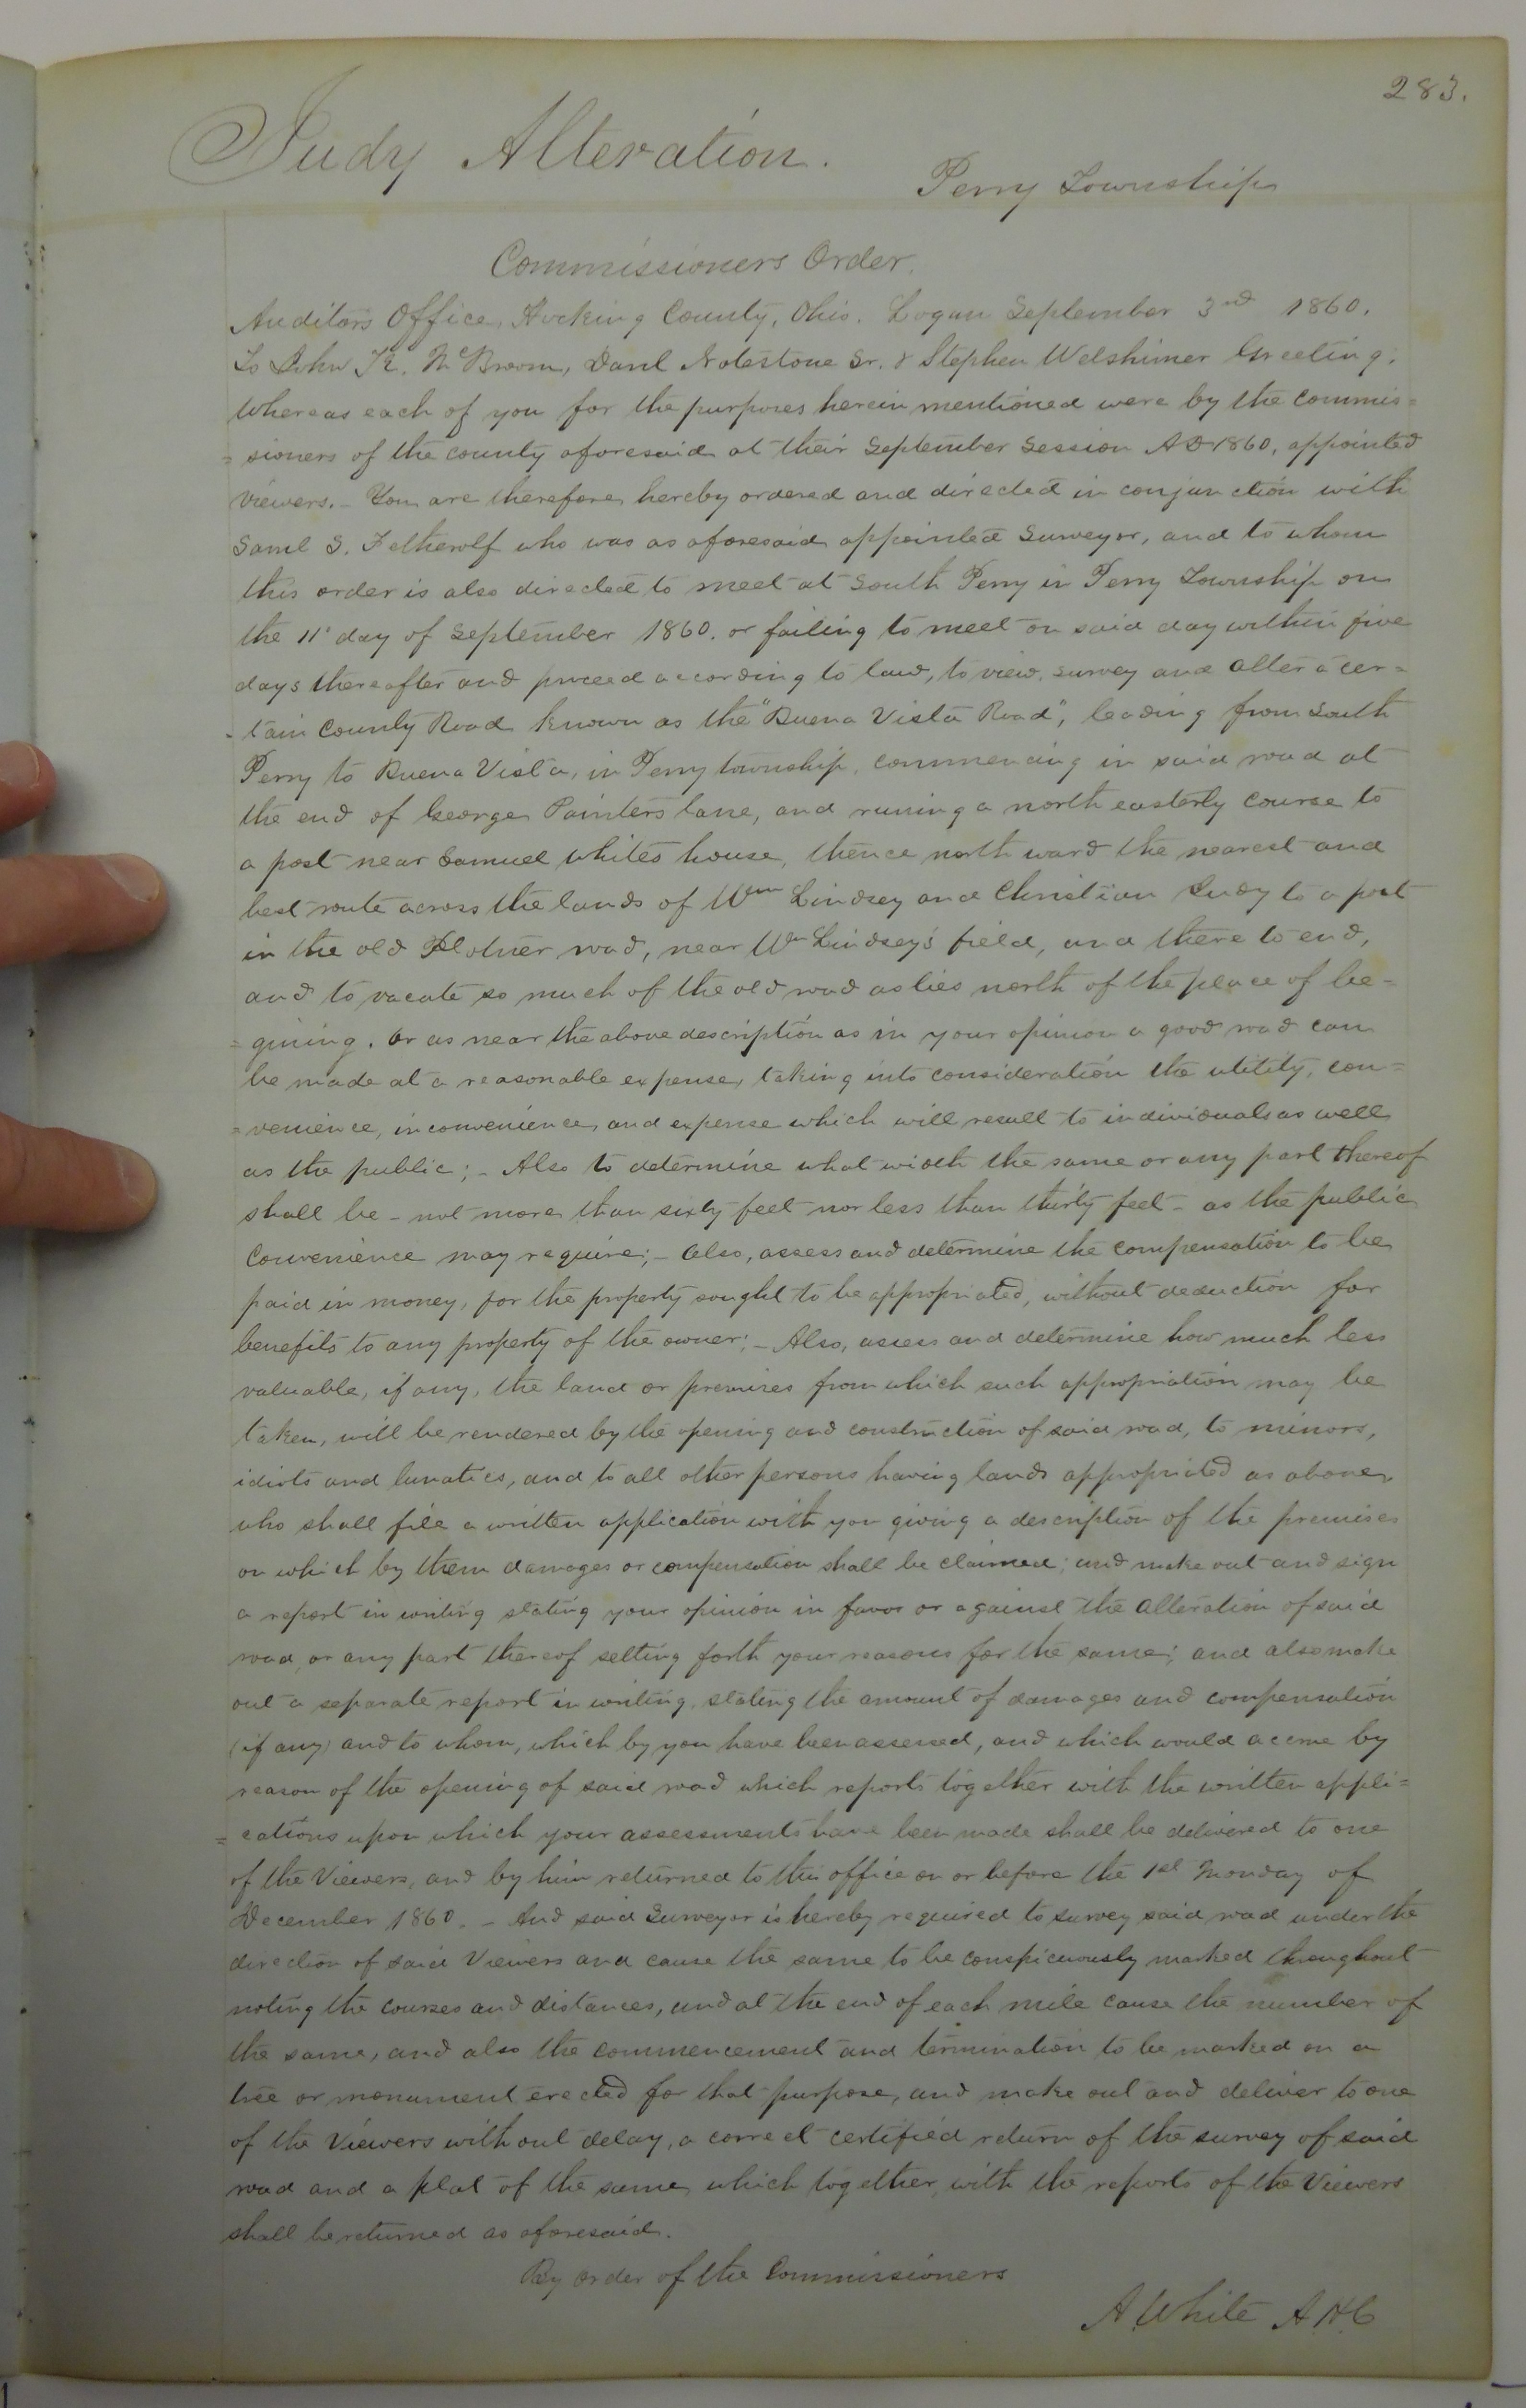 283.
Judy Alteration.
Perry Township
Commissioners Order.
Auditors Office, Hocking County, Ohio. Logan September 3rd 1860.
To John K. McBroom, Danl Notestone Sr. & Stephen Welshimer Greeting:
Whereas each of you for the purposes herein mentioned were by the commis=
=sioners of the county aforesaid at their September Session AD 1860, appointed
viewers. - You are therefore hereby ordered and directed in conjunction with
Saml S. Fetherolf who was as aforesaid appointed Surveyor, and to whom
this order is also directed to meet at South Perry in Perry Township on
the 11' day of September 1860. or failing to meet on said day within five
days thereafter and proceed according to law, to view, survey and alter a cer=
-tain County Road known as the "Buena Vista Road", leading from South
Perry to Buena Vista, in Perry township, commencing in said road at
the end of George Painters lane, and runing a north easterly course to
a post near Samuel Whites house, thence north ward the nearest and
best route across the lands of Wm Lindsey and Christian Judy to a post
in the old road, near Wm Lindsey's field, and there to end,
and to vacate so much of the old road as lies north of the place of be=
=gining. or as near the above description as in your opinion a good road can
be made at a reasonable expense, taking into consideration the utility, con=
=venience, inconvenience, and expense which will result to individuals as well
as the public; - Also to determine what width the same or any part thereof
shall be - not more than sixty feet nor less than thirty feet - as the public
convenience may require; - Also, assess and determine the compensation to be
paid in money, for the property sought to be appropriated, without deduction for
benefits to any property of the owner; - Also, assess and determine how much less
valuable, if any, the land or premises from which such appropriation may be
taken, will be rendered by the opening and construction of said road, to minors,
idiots and lunatics, and to all other persons having lands appropriated as above
who shall file a written application with you giving a description of the premises
on which by them damages or compensation shall be claimed; and make out and sign
a report in writing stating your opinion in favor or against the alteration of said
road, or any part thereof setting forth your reasons for the same; and also make
out a separate report in writing, stating the amount of damages and compensation
(if any) and to whom, which by you have been assessed, and which would accrue by
reason of the opening of said road which reports together with the written appli=
=cations upon which your assessments have been made shall be delivered to one
of the Viewers, and by him returned to this office on or before the 1st Monday of
December 1860. - And said Surveyor is hereby required to survey said road under the
direction of said Viewers and cause the same to be conspicuously marked throughout
noting the courses and distances, and at the end of each mile cause the number of
the same, and also the commencement and termination to be marked on a
tree or monument erected for that purpose, and make out and deliver to one
of the Viewers without delay, a correct certified return of the survey of said
road and a plat of the same, which together with the reports of the Viewers
shall be returned as aforesaid.
By order of the Commissioners
A. White A.H.C